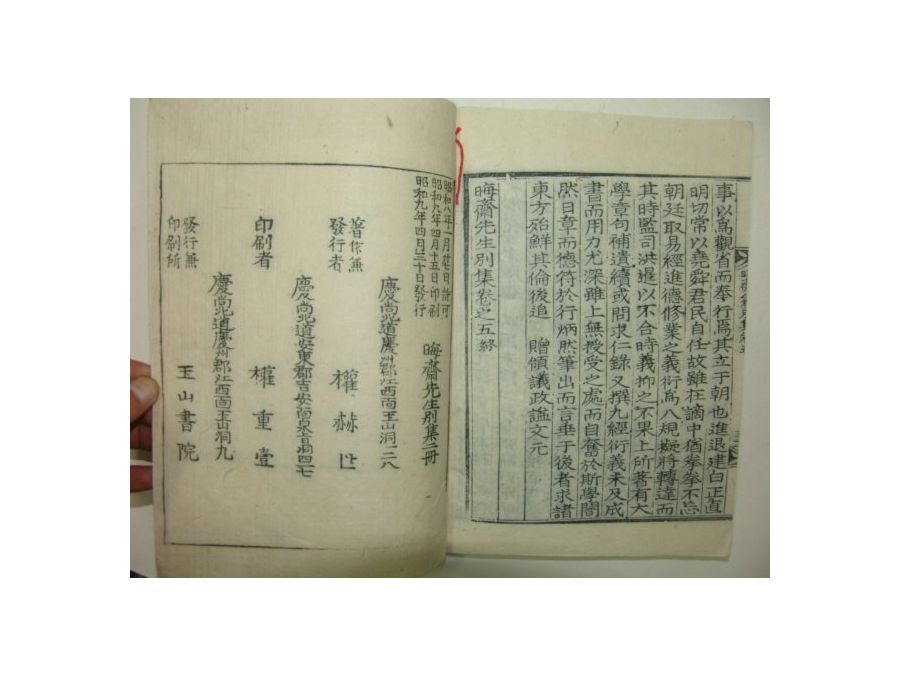 事以爲觀省而奉行焉其立于朝也進退建白正直
明切常以堯舜君民自任故雖在謫中猶拳拳不忘
朝廷取易經進德修業之義衍爲八規擬將轉達而
其時監司洪暹以不合時義抑之不果上所著有大
學章句補遺續或問求仁錄又撰九經衍義未及成
書而用力尤深雖上無授受之處而自奮於斯學闇
然日章而德符於行炳然筆出而言垂于後者求諸
東方殆鮮其倫後追 贈領議政謚文元
晦齋先生別集卷之五終
昭和八年一月廿日許可
昭和九年四月十五日印刷
昭和九年四月三十日發行
晦齋先生別集二冊
慶尙北道慶州郡江西面玉山洞一二八
著作兼
發行者 權赫
慶尙北道安東郡吉安面 洞四一七
印刷者 權重壹
慶尙北道慶州郡江西面玉山洞九
發行兼
印刷所 玉山書院